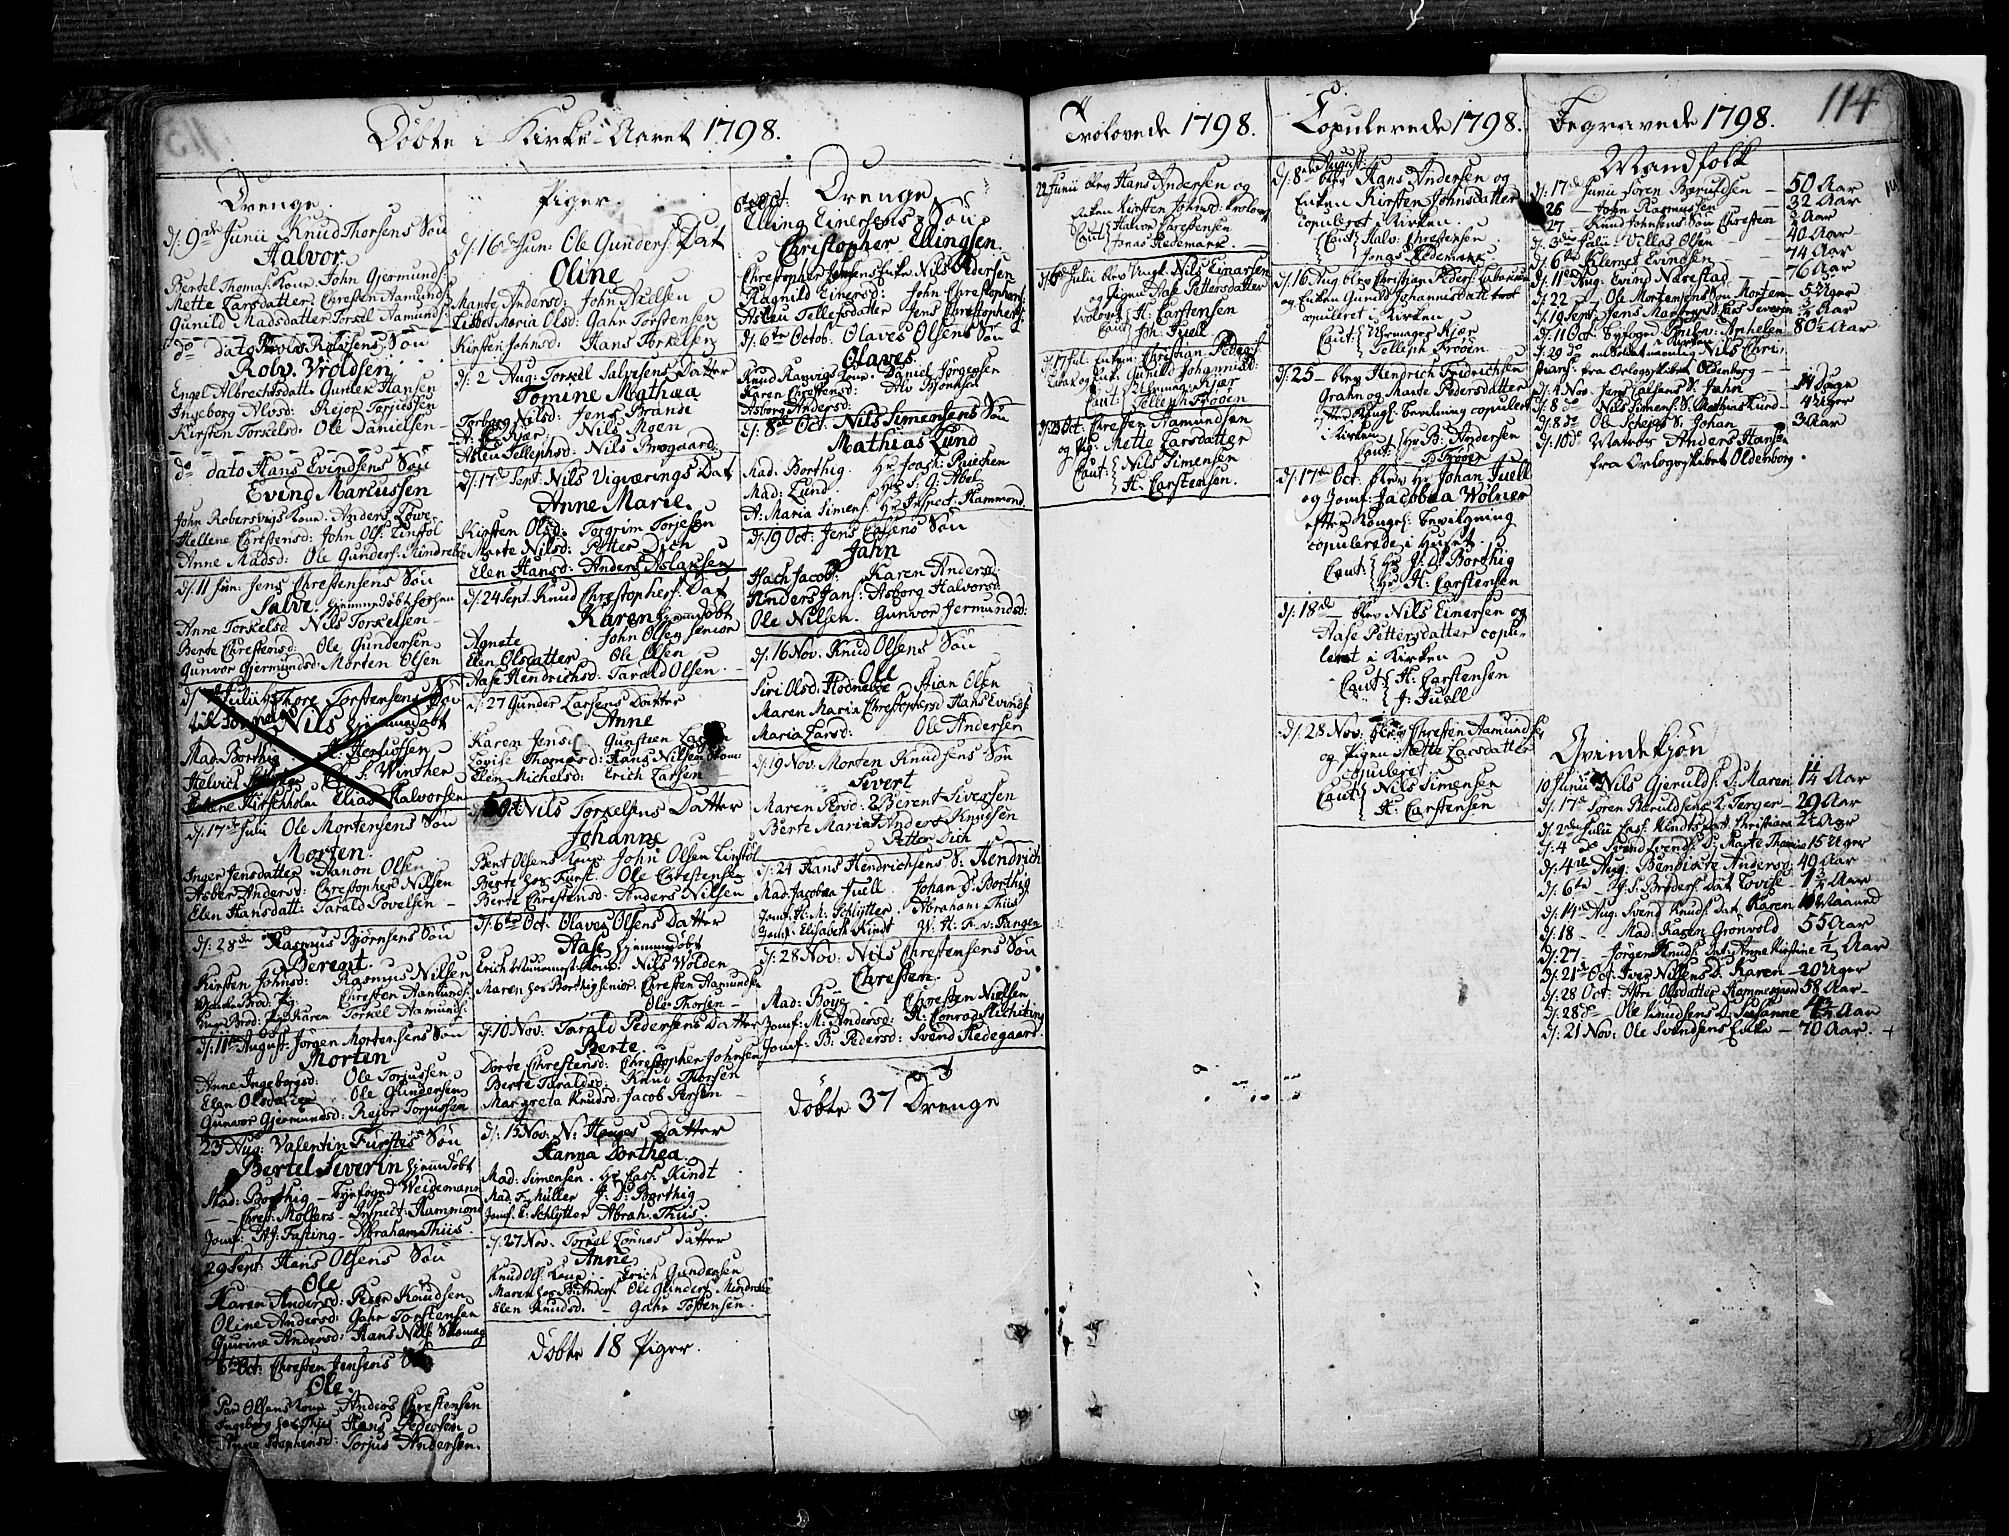 Døbte i Kirke-Aaret 1798.
Drenge.
d: 9de Junii Knud Thorsens Søn
Halvor.
Bertel Thomas. Kone John Gjermunds.
Mette Larsdatter. Christen Aamunds.
Gunild Madsdatter Torkel Aamunds.
do dato Rolvs Søn
Rolv. Vroldsen
Engel Albrechtsdatt. Guttek Hansen
Ingeborg Olvsd: Rejor Torjussen
Kirsten Torkelsd: Ole Danielsen
do dato Hans Evindsens Søn
Evind Marcussen
John Robersvigs Kone. Anders Løwe.
Hellene Chrestensd: John Ols: Linstøl
Anne Madsd: Ole Gunders: Mindrebøe
d: 11 Jun: Jens Chrestensens Søn
Salve. hjemmedøbt
Anne Torkelsd: Nils Torkelsen
Berte Chrestensd: Ole Gundersen
Gunvor Gjermundsd: Morten Olsen
Julii Thore Torstensens Søn
Nils hjemmedøbt
Mad: Borthig
S: Winther
Elias Halvorsen
d: 17de Julii Ole Mortensens Søn
Morten.
Inger Jensdatter Hanon Olsen
Asber Andersd: Chrestopher Nilsen
Elen Hansdatt: Tarald Povelsen
d: 28de Rasmus Bjørnsens Søn
Berent.
Kirsten Johnsd: Rasmus Nilsen
Chresten Aamunds:
Torkel Aamunds:
d: 11te August: Jørgen Mortensens Søn
Morten
Anne Ingeborgsd: Ole Torjussen
Elen Olsdatter Ole Gundersen
Gunvor Gjermundsd: Rejor Torjussen
23 Aug: Valentin Fürstes Søn
Bertel Severin hjemdøbt
Mad: Borthig – Byefogd Weidemann
Chrest: Møllers – Inspect: Hammond
Jomf: Fasting – Abraham Thiis.
29 Sept: Hans Olsens Søn
Ole
Karen Andersd: Peer Knudsen
Oline Andersd: Gahr Torstensen
Gjurine Andersd: Hans Nils: Skomag
6te Oct: Chresten Jensens Søn
Ole.
Per Olsens Kone Anders Chrestensen
Ingeborg hos Thiis Hans Pedersen
Anne Stephensd: Torjus Andersen.
Piger.
d: 16de Jun: Ole Gunders: Dat
Oline
Marte Andersd: John Axelsen
Lisbet Maria Olsd: Gahr Torstensen
Kirsten Johnsd: Hans Torkelsen
d: 2 Aug: Torkel Salvesens Datter
Tomine Mathea
Torborg Nilsd: Jens Brande
Kjær Nils Moen
Aslen Tellephsd: Nils Brogaard:
d: 17de Sept: Nils Vigværings Dat
Anne Marie.
Kirsten Olsd: Torgrim Torjesen
Marte Nilsd: Petter Dich
Elen Hansd: Anders Aslaksen
d: 24 Sept. Knud Chrestophers: Dat
Karen hjemmedøbt
Agnete John Olsen Senior
Elen Olsdatter Ole Olsen
Aase Hendrichsd: Tarald Olsen.
d: 27 Gunder Larsens Datter
Anne
Karen Jens: Gunsten Larsen
Lovise Thomasd: Hans Nilsen Skom:
Elen Michelsd: Erich Larsen
Oct: Nils Torkelsens Datter
Johanne
Bent Olsens Kone John Olsen Linstøl
Berte hos Fürst. Ole Chrestensen
Berte Chrestensd: Anders Nilsen
d: 6te Oct. Olaves Olsens Datter
Aase hjemmedøbt
Nils Wolden
Maren hos Borthig senior. Chresten Aamundsen
Ole Thorsen
d: 10 Nov. Tarald Pedersens Datter
Berte
Dorte Chrestensd: Chrestopher Johnsen
Berte Taraldsd: Knud Thorsen
Margreta Knudsd: Jacob Persen
d: 15 Nov. N: Hauges Datter
Hanna Dorthea.
Mad: Simensen. Hr Cass. Kindt
Mad. F. Müller J: D: Borthig
Jomf. E: Schlytter Abrah. Thiis.
d: 27 Nov. Torkel Lønnes Datter
Anne
Knud Ols: Kone – Erich Gundersen
Maren hos B: Anders: Ole Gunders: Mindrebøe
Elen Knudsd: – Gahr Tostensen.
døbte 18 Piger.
Drenge
6te Oct: Elling Einersens Søn
Christopher Ellingsen.
Chrestopher Jensens Enke Nils Pedersen
Ragnild Einersd: John Chrestophers:
Aslen Tellefsdatter Jens Chrestophers:
d: 6te Octob. Olaves Olsens Søn
Olaves
Knud Ranvigs Kone. Daniel Jørgensen
Karen Chrestensd:
Asborg Andersd:
d: 8de Oct. Nils Simensens Søn
Mathias Lund
Mad: Borthig. Hr Joach: Reichen
Mad: Lund Hr S: G: Abel
A: Maria Simens: Hr Inspect: Hammond
d: 19 Oct: Jens Cajsens Søn
Jahn
Hach Jacob: Karen Andersd:
Anders Jans: Asborg Halvorsd:
Ole Nilsen. Gunvor Jermundsd:
d: 16 Nov. Knud Olsens Søn
Ole
Siri Olsd: Hodnebøe Stian Olsen
Maren Maria Chrestophersd Hans Evinds:
Maria Larsd: Ole Andersen
d: 19 Nov. Morten Knudsens Søn
Sivert
Maren Berent Siversen
Berte Maria Anders Knudsen
Petter Dich
d: 24 Hans Hendrichsens S: Hendrich
Mad: Jacobea Juell. Johan D: Borthig
Jomf: H: M: Schlytter. Abraham Thiis
Jomf: Elisabeth Kindt W: H: F: v: Tangen
d: 28 Nov: Nils Chrestensens Søn
Chresten.
Mad: Boye – Chresten Nielsen
Jomf: M: Andersd: H: Conrad
Jomf: B: Pedersd: Svend Hedegaard.
døbte 37 Drenge
Trolovede 1798.
22 Junii blev Hans Andersen og
Enken Kirsten Johnsd: trolovet
Caut: Halvor Chrestensen
Jonas Hedemark.
d: 6te Julii blev Ungk: Nils Einarsen
og Pigen Aase Pettersdatter
trolovet
Caut: H: Carstensen
Joh: Juell
d: 17 Jul. Enkem: Christian Peders:
og Enk: Gunild Johannisd:
Caut: Uhrmager Kjær
Telleph Frøen
d: 23 Oct: Chresten Aamundsen
og Pig: Mette Larsdatter
Caut: Nils Simensen
H: Carstensen.
Copulerede 1798.
d: 8de August: blev Hans Andersen og
Enken Kirsten Johnsdatter
copuleret i Kirken.
Caut: Halv: Chrestensen
Jonas Hedemark
d: 16 Aug: blev Christian Peders:
og Enken Gunild Johannisdatter
copuleret i Kirken
Caut: Uhrmager Kjær
Telleph Frøen
d: 25 – blev Hendrich Fridrichsen
Grahn og Marte Pedersdatter
Kongl: bevilning copuleret
i Kirken
Caut: Hr B: Andersen
T. Frøen
d: 17de Oct. blev Hr Johan Juell
og Jomf: Jacobea Wølner
efter Kongel: bevilgning
copulerede i Huset.
Caut: Hr J: D: Borthig
Hr H: Carstensen
d: 18de – blev Nils Einersen og
Aase Pettersdatter copu-
leret i Kirken
Caut: H: Carstensen
J: Juell
d: 28 Nov: blev Chresten Aamundsen
og Pigen Mette Larsdatter
copuleret
Caut: Nils Simensen
H: Carstensen.
Begravede 1798.
114
Mandfolk
d: 17de Junii Søren Beruldsen – 50 Aar
26 – John Rasmussen – 32 Aar
27 – Knud Johnsens Søn Chresten – Aar
d: 3die Julii Vellas Olsen – 40 Aar
d: 6te – Klemet Evindsen – 74 Aar
d: 11te Aug: Evind Nærestad – 76 Aar
d: 22 – Ole Mortensens Søn Morten 5 Uger
d: 19 Sept: Jens Severin ½ Aar
d: 11 Oct – Byefogd Anthelen 80½ Aar
d: 29 do Nils Chri-
stians: fra Orlogsskibet Oldenborg
d: 4 Nov. Jens Cajsens S: Jahn – 14 Dage
d: 8 do Nils Simens: S. Mathias Lund – 4 Uger
d: 8 do Ole S: Johan 3 Aar
d: 10 do Matros Anders Hansen
fra Orlogsskibet Oldenborg.
Qvindekjøn
10 Junii Nils Gjerulds: D: Maren 1¼ Aar
d: 17de Søren Beruldsens – 29 Aar
d: 2den Julii Cass. Kindts Dat. Christiana 2½ Aar
d: 4de do Svend Evends: D: Marte Thomine 15 Uger
d: 4de Aug: Bendicte Andersd: 49 Aar
d: 6te – Brøders Dat Lovise – 1¾ Aar
d: 14de Aug: Svend Knuds: Dat. Karen 10 Maaned
d: 18 – Mad: Karen Grønvold 55 Aar
d: 27 – Jørgen Knuds: Dat: Anne Kirstine ½ Aar
d: 21 Oct: Iver Nilsens D: Karen – 20 Uger
d: 28 Oct: Abri Olsdatter Hammersaard 58 Aar –
d: 28 do – Ole Knudsens D: Susanne Aar
d: 21 Nov: Ole Svendsens Enke – 70 Aar. +